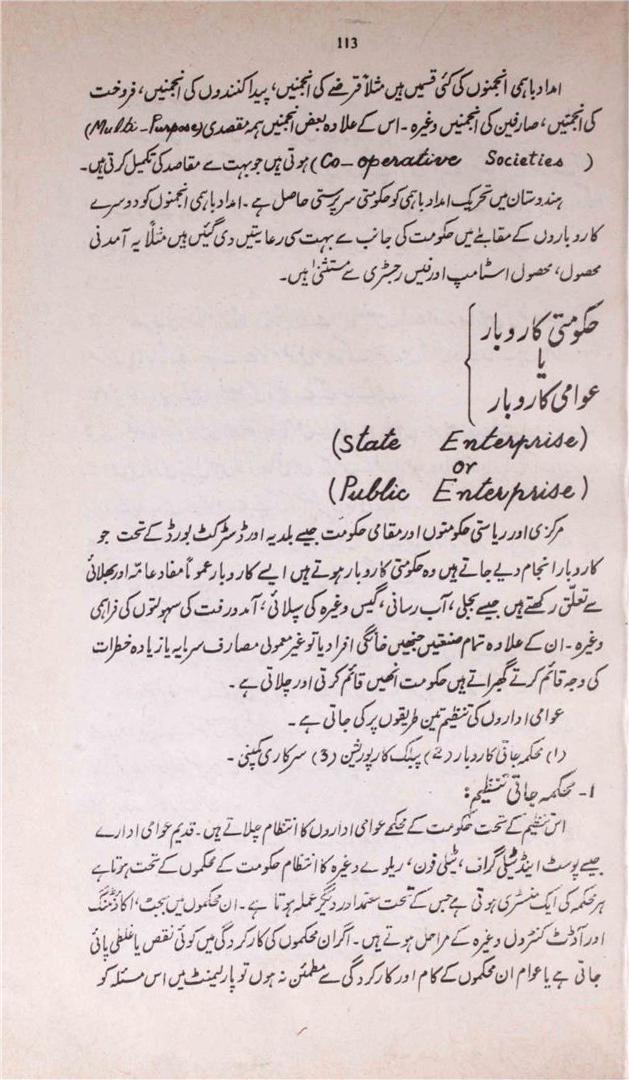 113
امداد باہمی انجمنوں کی کئی قسمیں ہیں مثلاً قرضے کی انجمنیں، پیدا کنندوں کی انجمنیں، فروخت
کی انجمنیں، صارفین کی انجمنیں وغیرہ۔ اس کے علاوہ بعض انجمنیں ہمہ مقصدی (Multi-Purpose)
(Co-operative Societies) ہوتی ہیں جو بہت سے مقاصد کی تکمیل کرتی ہیں۔
ہندوستان میں تحریک امداد باہمی کو حکومتی سرپرستی حاصل ہے۔ امداد باہمی انجمنوں کو دوسرے
کاروباروں کے مقابلے میں حکومت کی جانب سے بہت سی رعایتیں دی گئیں ہیں مثلاً یہ آمدنی
محصول، محصول اسٹامپ اور فیس رجسٹری سے مستثنیٰ ہیں۔
حکومتی کاروبار
یا
عوامی کاروبار
(State Enterprise)
or
(Public Enterprise)
مرکزی اور ریاستی حکومتوں اور مقامی حکومت جیسے بلدیہ اور ڈسٹرکٹ بورڈ کے تحت جو
کاروبار انجام دیے جاتے ہیں وہ حکومتی کاروبار ہوتے ہیں ایسے کاروبار عموماً مفاد عامہ اور بھلائی
سے تعلق رکھتے ہیں جیسے بجلی، آب رسانی، گیس وغیرہ کی سپلائی، آمدورفت کی سہولتوں کی فراہمی
وغیرہ۔ ان کے علاوہ تمام صنعتیں جنھیں خانگی افراد یا تو غیر معمولی مصارف سرمایہ یا زیادہ خطرات
کی وجہ قائم کرتے گھبراتے ہیں حکومت انھیں قائم کرتی اور چلاتی ہے۔
عوامی اداروں کی تنظیم تین طریقوں پر کی جاتی ہے۔
(1) محکمہ جاتی کاروبار (2) پبلک کارپوریشن (3) سرکاری کمپنی۔
1- محکمہ جاتی تنظیم:
اس تنظیم کے تحت حکومت کے محکمے عوامی اداروں کا انتظام چلاتے ہیں۔ قدیم عوامی ادارے
جیسے پوسٹ اینڈ ٹیلی گراف، ٹیلی فون، ریلوے وغیرہ کا انتظام حکومت کے محکموں کے تحت ہوتا ہے
ہر محکمہ کی ایک منسٹری ہوتی ہے جس کے تحت معتمد اور دیگر عملہ ہوتا ہے۔ ان محکموں میں بجٹ، اکاؤنٹنگ
اور آڈٹ کنٹرول وغیرہ کے مراحل ہوتے ہیں۔ اگر ان محکموں کی کارکردگی میں کوئی نقص یا غلطی پائی
جاتی ہے یا عوام ان محکموں کے کام اور کارکردگی سے مطمئن نہ ہوں تو پارلیمنٹ میں اس مسئلہ کو